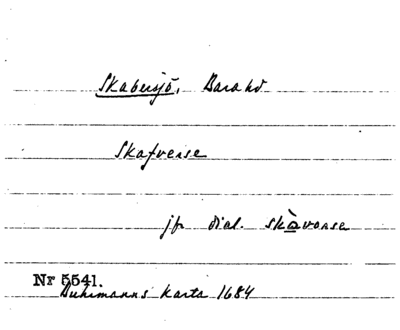 Skabersjö, Bara hd
Skafverse
jfr dial. skàvorse
Nr 5541.
Buhrmanns karta 1684